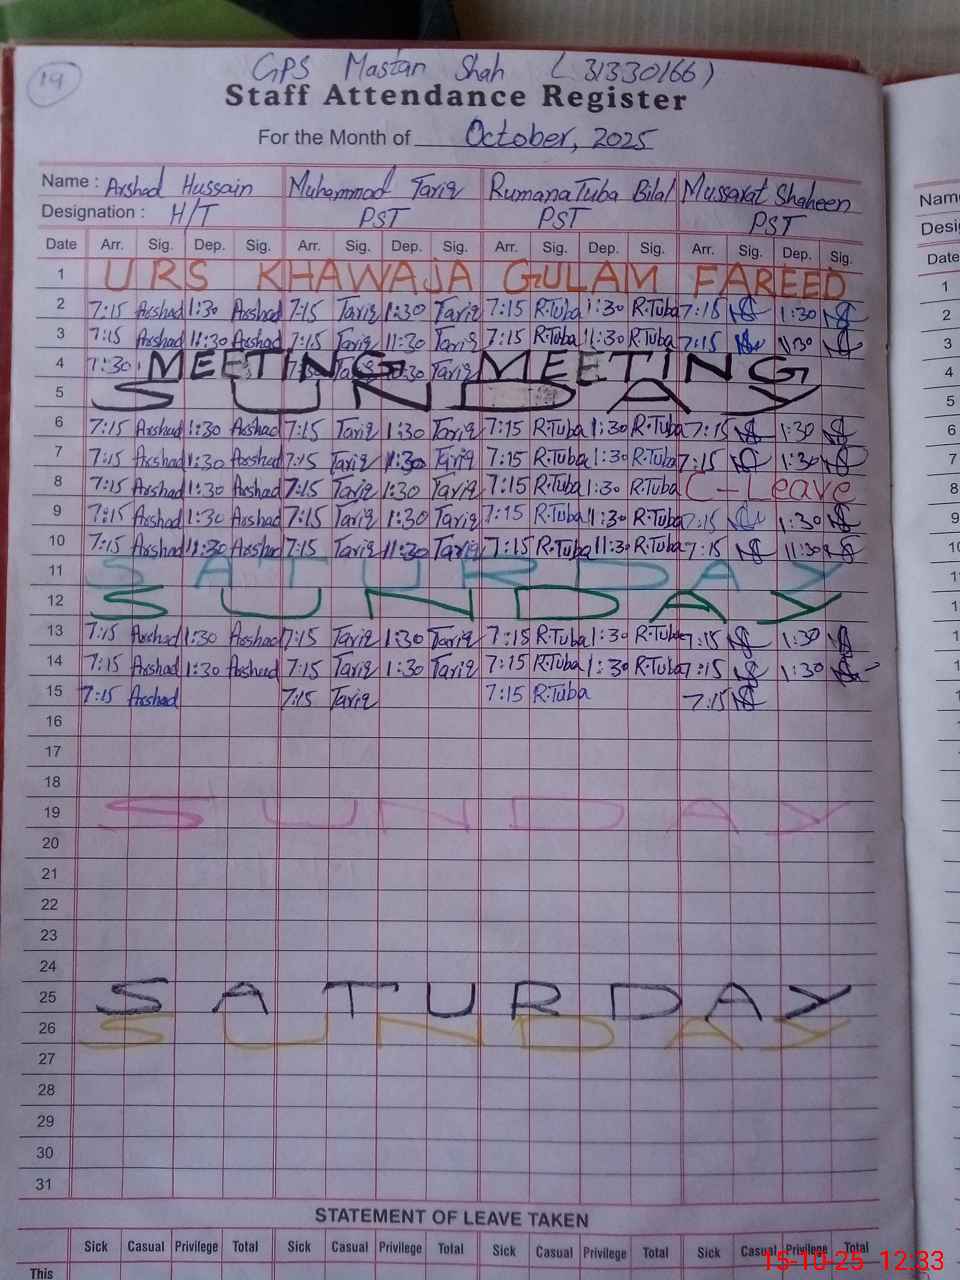 19
GPS Mastan Shah (31330166)
Staff Attendance Register
For the Month of October, 2025
Name : Arshad Hussain Muhammad Tariq Rumana Tuba Bilal Mussarat Shaheen
Designation : H/T PST PST PST
Date Arr. Sig. Dep. Sig. Arr. Sig. Dep. Sig. Arr. Sig. Dep. Sig. Arr. Sig. Dep. Sig.
1 URS KHAWAJA GULAM FAREED
2 7:15 Arshad 1:30 Arshad 7:15 Tariq 1:30 Tariq 7:15 R.Tuba 1:30 R.Tuba 7:15 1:30
3 7:15 Arshad 11:30 Arshad 7:15 Tariq 11:30 Tariq 7:15 R.Tuba 11:30 R.Tuba 7:15 11:30
4 7:30 MEETING Tariq MEETING
5 SUNDAY
6 7:15 Arshad 1:30 Arshad 7:15 Tariq 1:30 Tariq 7:15 R.Tuba 1:30 R.Tuba 7:15 1:30
7 7:15 Arshad 1:30 Arshad 7:15 Tariq 1:30 Tariq 7:15 R.Tuba 1:30 R.Tuba 7:15 1:30
8 7:15 Arshad 1:30 Arshad 7:15 Tariq 1:30 Tariq 7:15 R.Tuba 1:30 R.Tuba C-Leave
9 7:15 Arshad 1:30 Arshad 7:15 Tariq 1:30 Tariq 7:15 R.Tuba 1:30 R.Tuba 7:15 1:30
10 7:15 Arshad 11:30 Arshad 7:15 Tariq 11:30 Tariq 7:15 R.Tuba 11:30 R.Tuba 7:15 11:30
11 SATURDAY
12 SUNDAY
13 7:15 Arshad 1:30 Arshad 7:15 Tariq 1:30 Tariq 7:15 R.Tuba 1:30 R.Tuba 7:15 1:30
14 7:15 Arshad 1:30 Arshad 7:15 Tariq 1:30 Tariq 7:15 R.Tuba 1:30 R.Tuba 7:15 1:30
15 7:15 Arshad 7:15 Tariq 7:15 R.Tuba 7:15
16
17
18
19 SUNDAY
20
21
22
23
24
25 SATURDAY
26 SUNDAY
27
28
29
30
31
STATEMENT OF LEAVE TAKEN
Sick Casual Privilege Total Sick Casual Privilege Total Sick Casual Privilege Total Sick Casual Privilege Total
This
Date
1
2
3
4
5
6
7
8
9
10
15-10-25 12:33